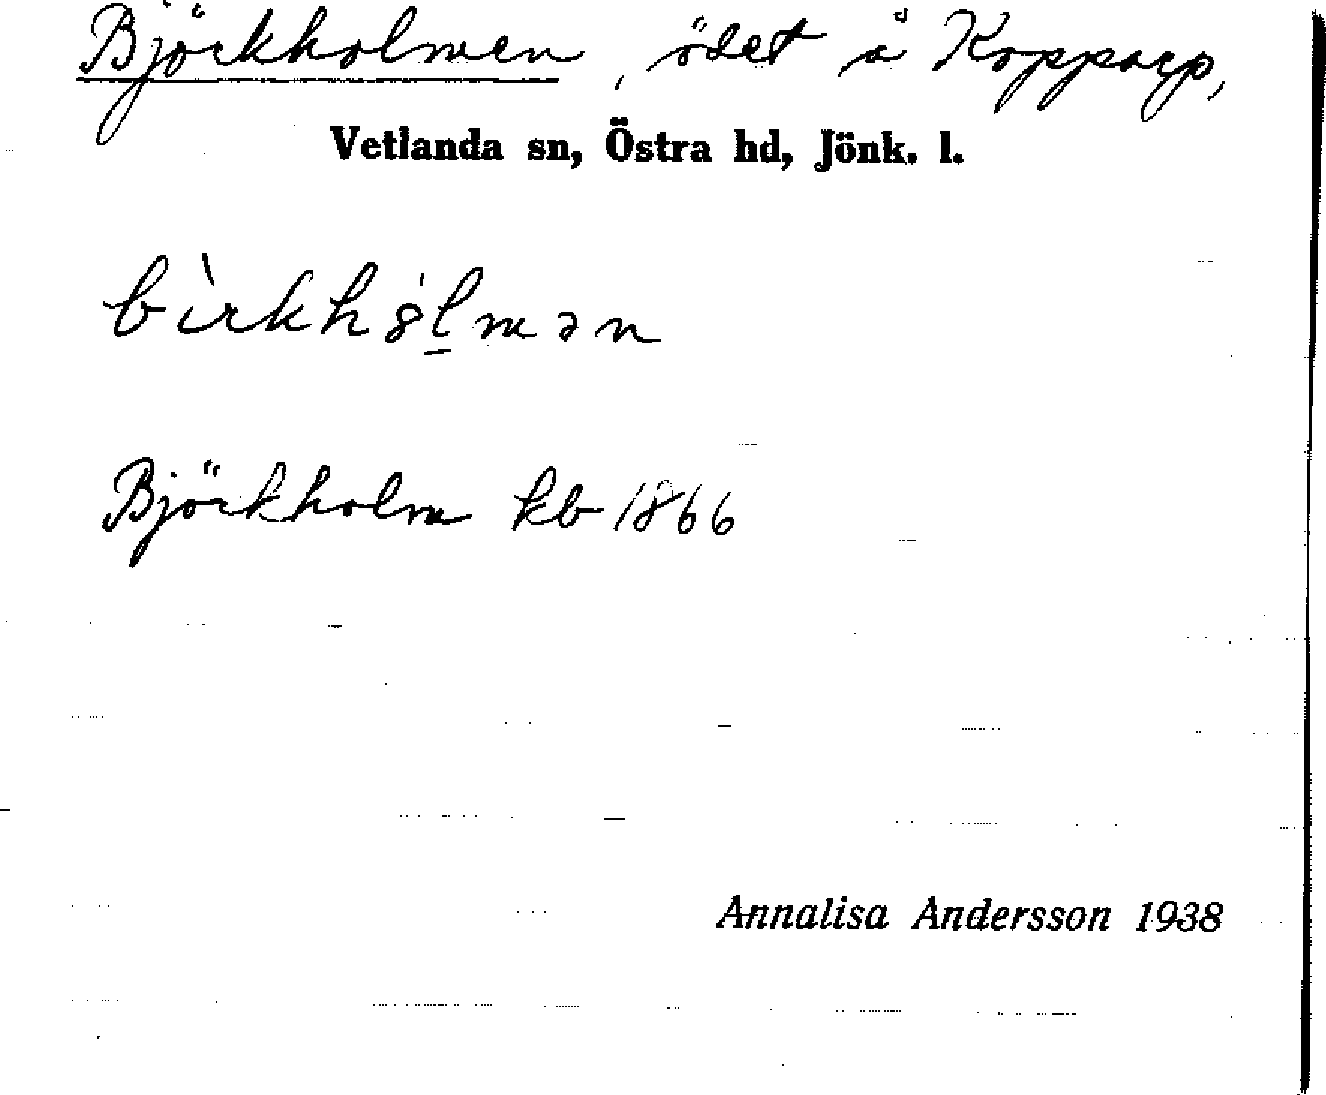 Björkholmen, ödet å Kopparp,
Vetlanda sn, Östra hd, Jönk. l.
Björkholm kb 1866
Annalisa Andersson 1938